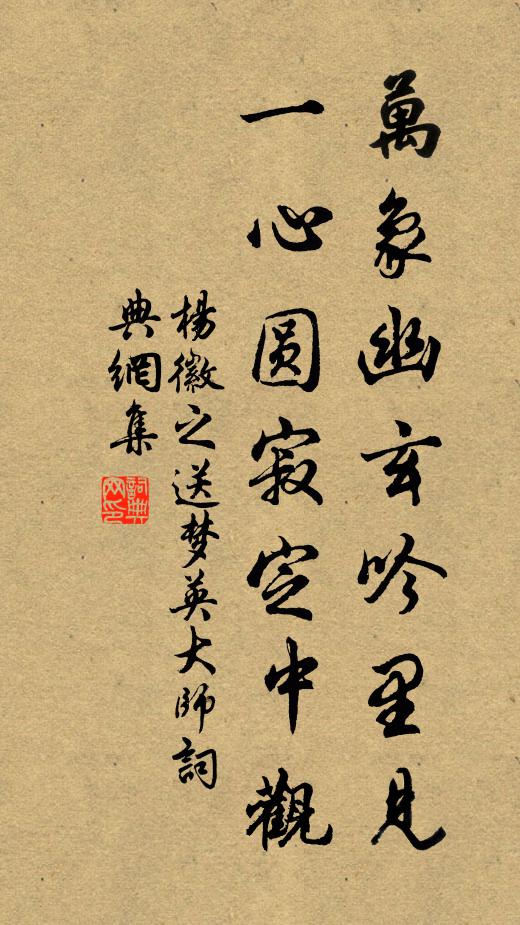 萬象幽玄吟里見
一心圆寂定中觀
楊徽之送梦英大師詞
典網集
詞典网印